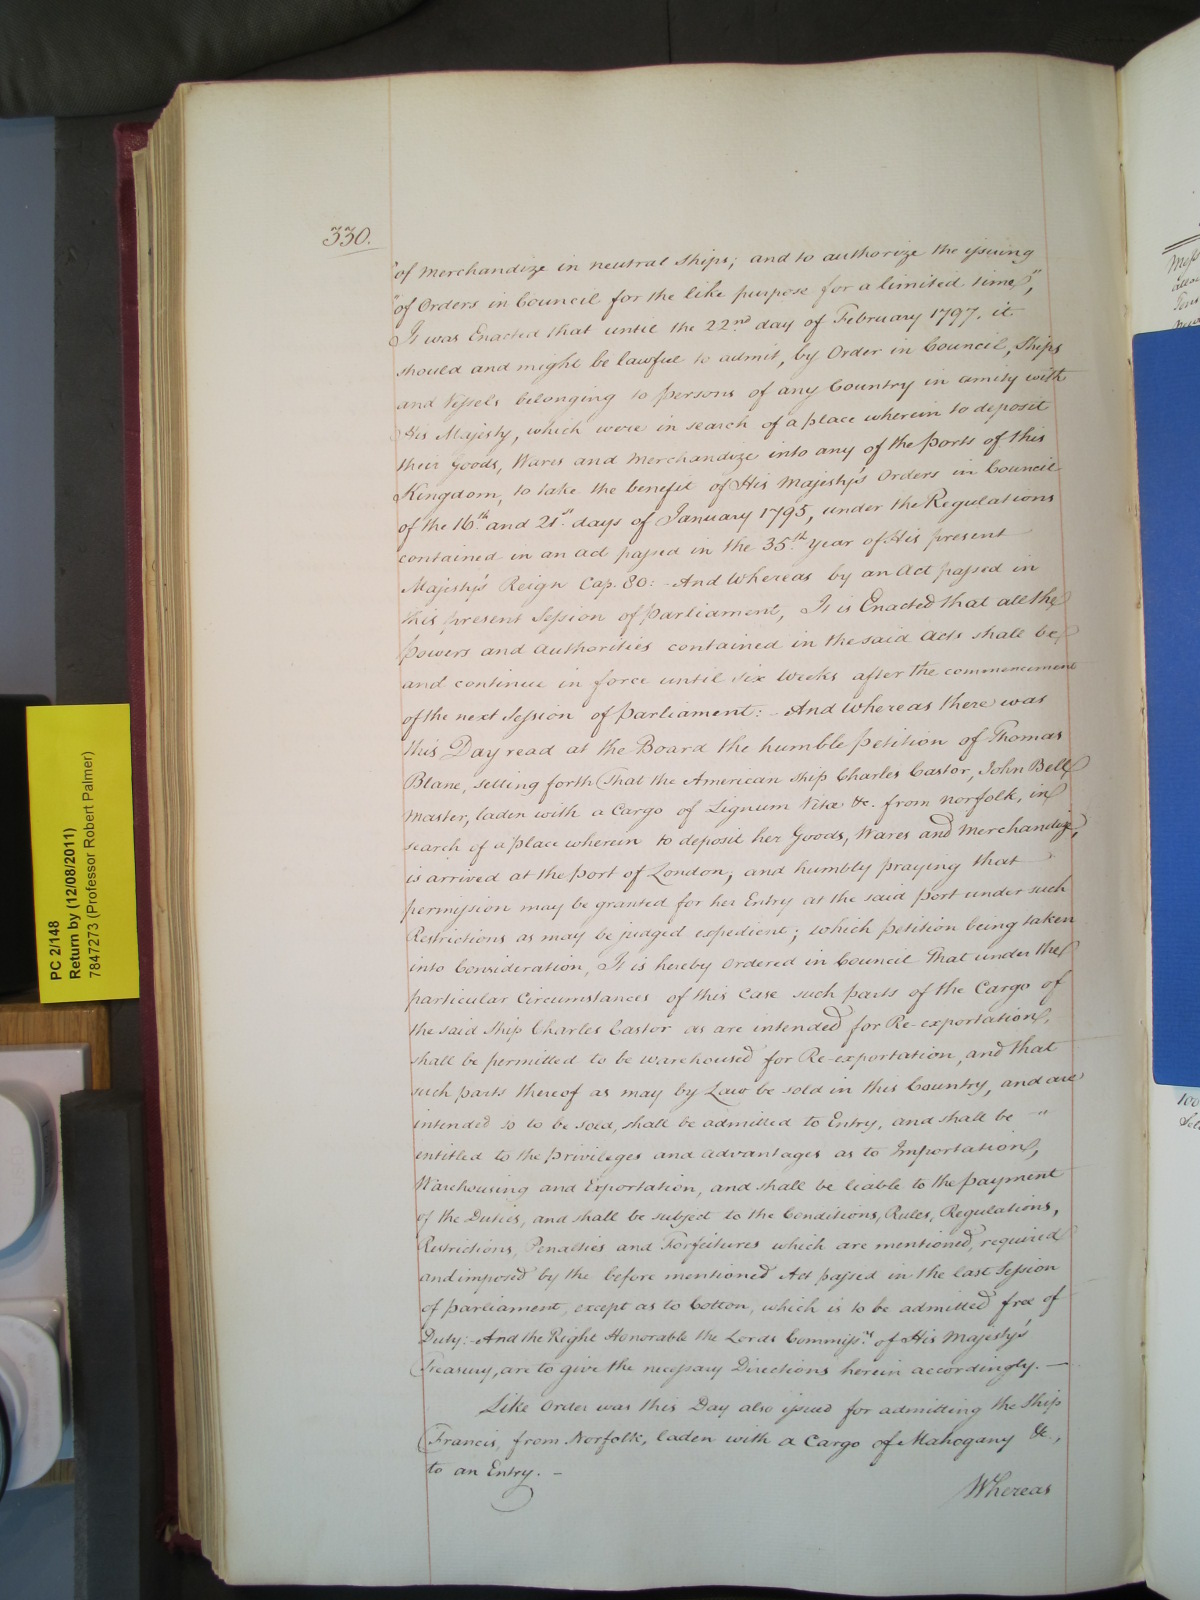 330.
"of Merchandize in neutral Ships; and to authorize the issuing
"of Orders in Council for the like purpose for a limited time,"
It was Enacted that until the 22nd day of February 1797. it
should and might be lawful to admit, by Order in Council, Ships
and Vessels belonging to persons of any Country in amity with
His Majesty, which were in search of a place wherein to deposit
their Goods, Wares and Merchandize into any of the Ports of this
Kingdom, to take the benefit of His Majesty's Orders in Council
of the 16th and 21st days of January 1795, under the Regulations
contained in an Act passed in the 35th year of His present
Majesty's Reign Cap. 80: - And Whereas by an Act passed in
this present Session of Parliament, It is Enacted that all the
powers and authorities contained in the said Acts shall be
and continue in force until six Weeks after the commencement
of the next Session of Parliament: - And Whereas there was
this Day read at the Board the humble Petition of Thomas
Blane, setting forth That the American Ship Charles Castor, John Bell
Master, laden with a Cargo of Lignum Vitæ &c. from Norfolk, in
search of a place wherein to deposit her Goods, Wares and Merchandize,
is arrived at the Port of London; and humbly praying that
permission may be granted for her Entry at the said Port under such
Restrictions as may be judged expedient; which Petition being taken
into Consideration, It is hereby Ordered in Council That under the
particular Circumstances of this Case such parts of the Cargo of
the said Ship Charles Castor as are intended for Re-exportation,
shall be permitted to be warehoused for Re-exportation, and that
such parts thereof as may by Law be sold in this Country, and are
intended so to be sold, shall be admitted to Entry, and shall be -"
entitled to the Privileges and advantages as to Importation,
Warehousing and Exportation, and shall be liable to the payment
of the Duties, and shall be subject to the Conditions, Rules, Regulations,
Restrictions, Penalties and Forfeitures which are mentioned, required
and imposed by the before mentioned Act passed in the last Session
of Parliament, except as to Cotton, which is to be admitted free of
Duty: - And the Right Honorable the Lords Commissrs of His Majesty's
Treasury, are to give the necessary Directions herein accordingly. —
Like Order was this Day also issued for admitting the Ship
Francis, from Norfolk, laden with a Cargo of Mahogany &c.,
to an Entry. -
Whereas
PC 2/148
Return by (12/08/2011)
7847273 (Professor Robert Palmer)